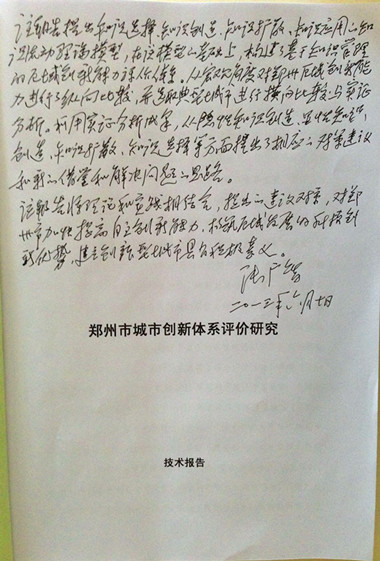 该报告提出知识选择、知识创造、知识扩散、知识应用的知
识流动理论模型,在该模型的基础上,构建了基于知识管理
的区域创新能力评价体系,从多次角度对郑州区域创新能
力进行了纵向比较,并选取典型城市进行横向比较与实证
分析。利用实证分析成果,从隐性知识创造、显性知识
创造、知识扩散、知识选择等方面提出了相应的对策建议
和新的借鉴和解决问题的思路。
该报告将理论和实践相结合,提出的建议对策,对郑
州市加快提高自主创新能力,构筑区域发展的科技创
新优势,建立创新型城市具有积极意义。
二〇一三年六月七日
郑州市城市创新体系评价研究
技术报告